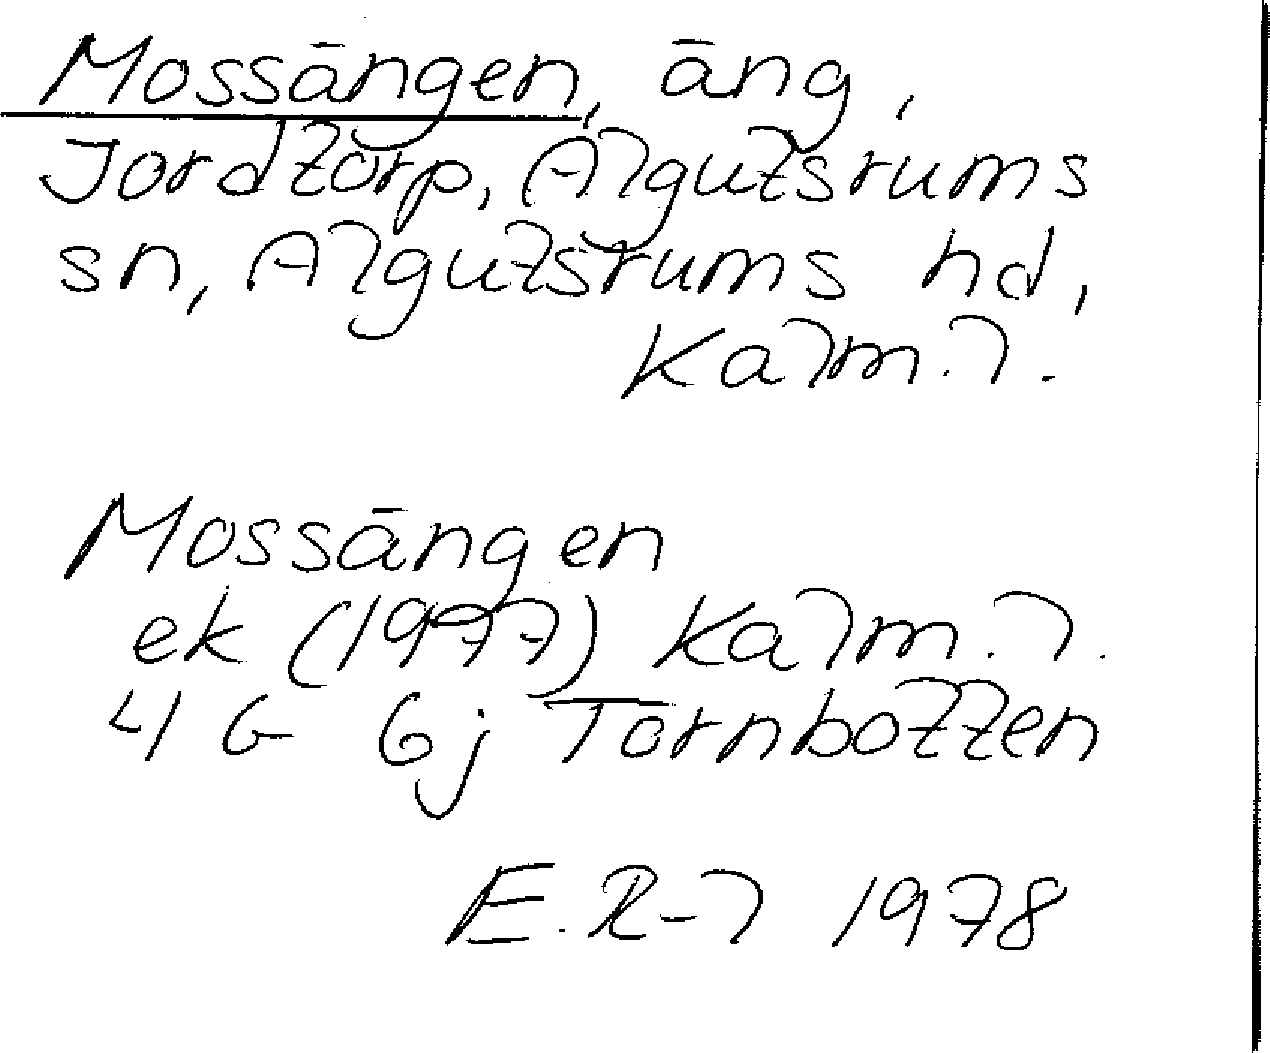 Mossängen, äng,
Jordtorp, Algutsrums
sn, Algutsrums hd,
Kalm. l.
Mossängen
ek (1977) Kalm. l.
4 G 6j Tornbotten
E. R-l 1978